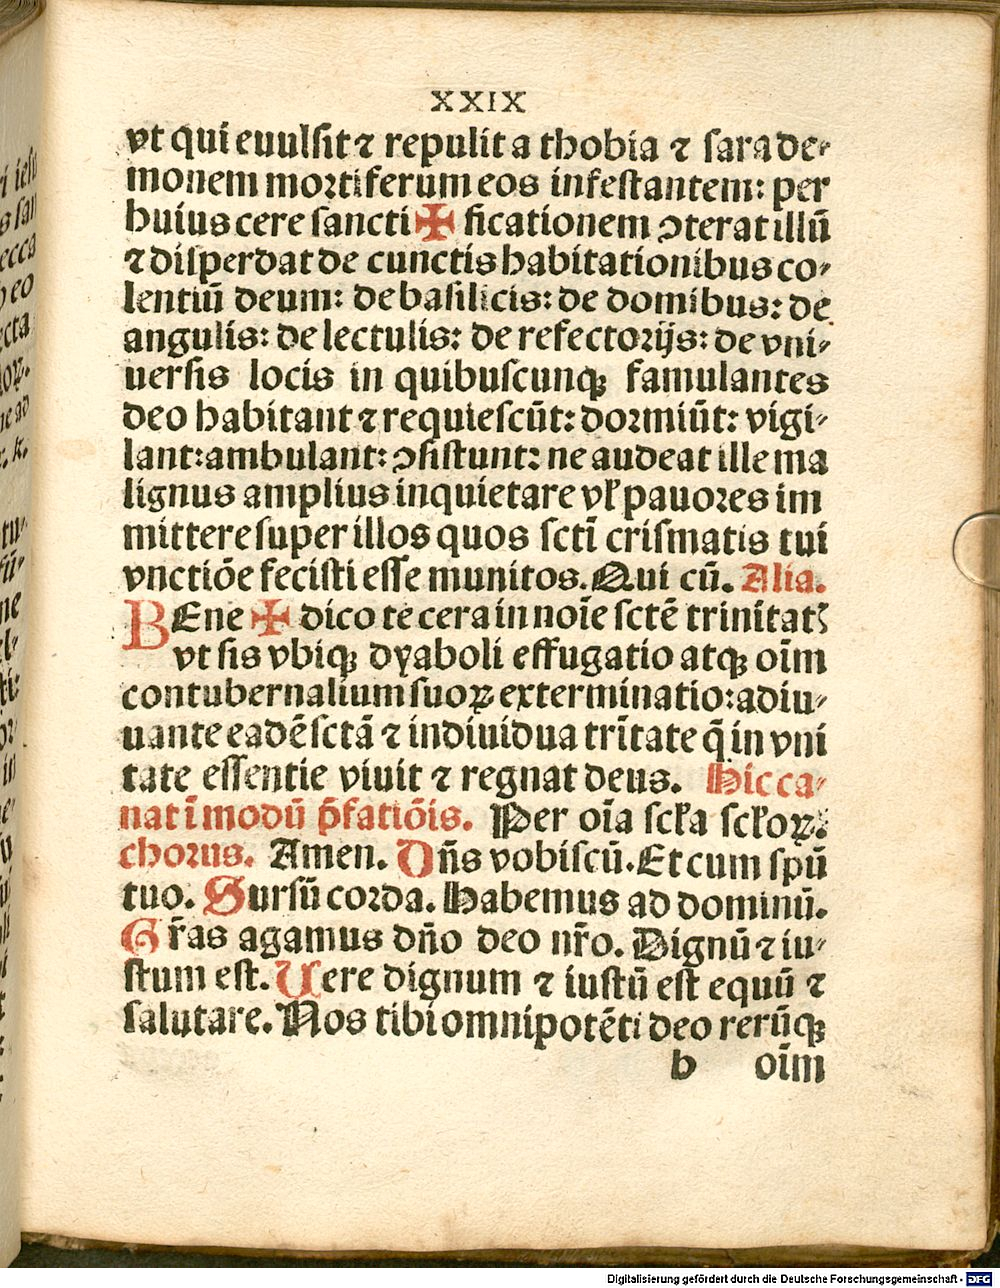 XXIX
vt qui euulsit ⁊ repulit a thobia ⁊ sara de⸗
monem mortiferum eos infestantem: per
huius cere sancti ✠ ficationem ↄterat illū
⁊ disperdat de cunctis habitationibus co⸗
lentiū deum: de basilicis: de domibus: de
angulis: de lectulis: de refectorijs: de vni⸗
uersis locis in quibuscunqꝫ famulantes
deo habitant ⁊ requiescūt: dormiūt: vigi⸗
lant: ambulant: ↄsistunt: ne audeat ille ma
lignus amplius inquietare vꝉ pauores im
mittere super illos quos sctī crismatis tui
vnctiōe fecisti esse munitos. Qui cū. Alia.
BEne ✠ dico te cera in noīe sctē trinitatꝭ
vt sis vbiqꝫ dyaboli effugatio atqꝫ oīm
contubernalium suoꝝ exterminatio: adiu⸗
uante eadē sctā ⁊ indiuidua trītate q̄ in vni
tate essentie viuit ⁊ regnat deus. Hic ca⸗
nat ī modū p̄fatiōis. Per oīa scꝉa scꝉoꝝ:
chorus. Amen. Dn̄s vobiscū. Et cum spū
tuo. Sursū corda. Habemus ad dominū.
Gr̄as agamus dn̄o deo nr̄o. Dignū ⁊ iu⸗
stum est. Uere dignum ⁊ iustū est equū ⁊
salutare. Nos tibi omnipotēti deo rerūqꝫ
b oīm
Digitalisierung gefördert durch die Deutsche Forschungsgemeinschaft - DFG